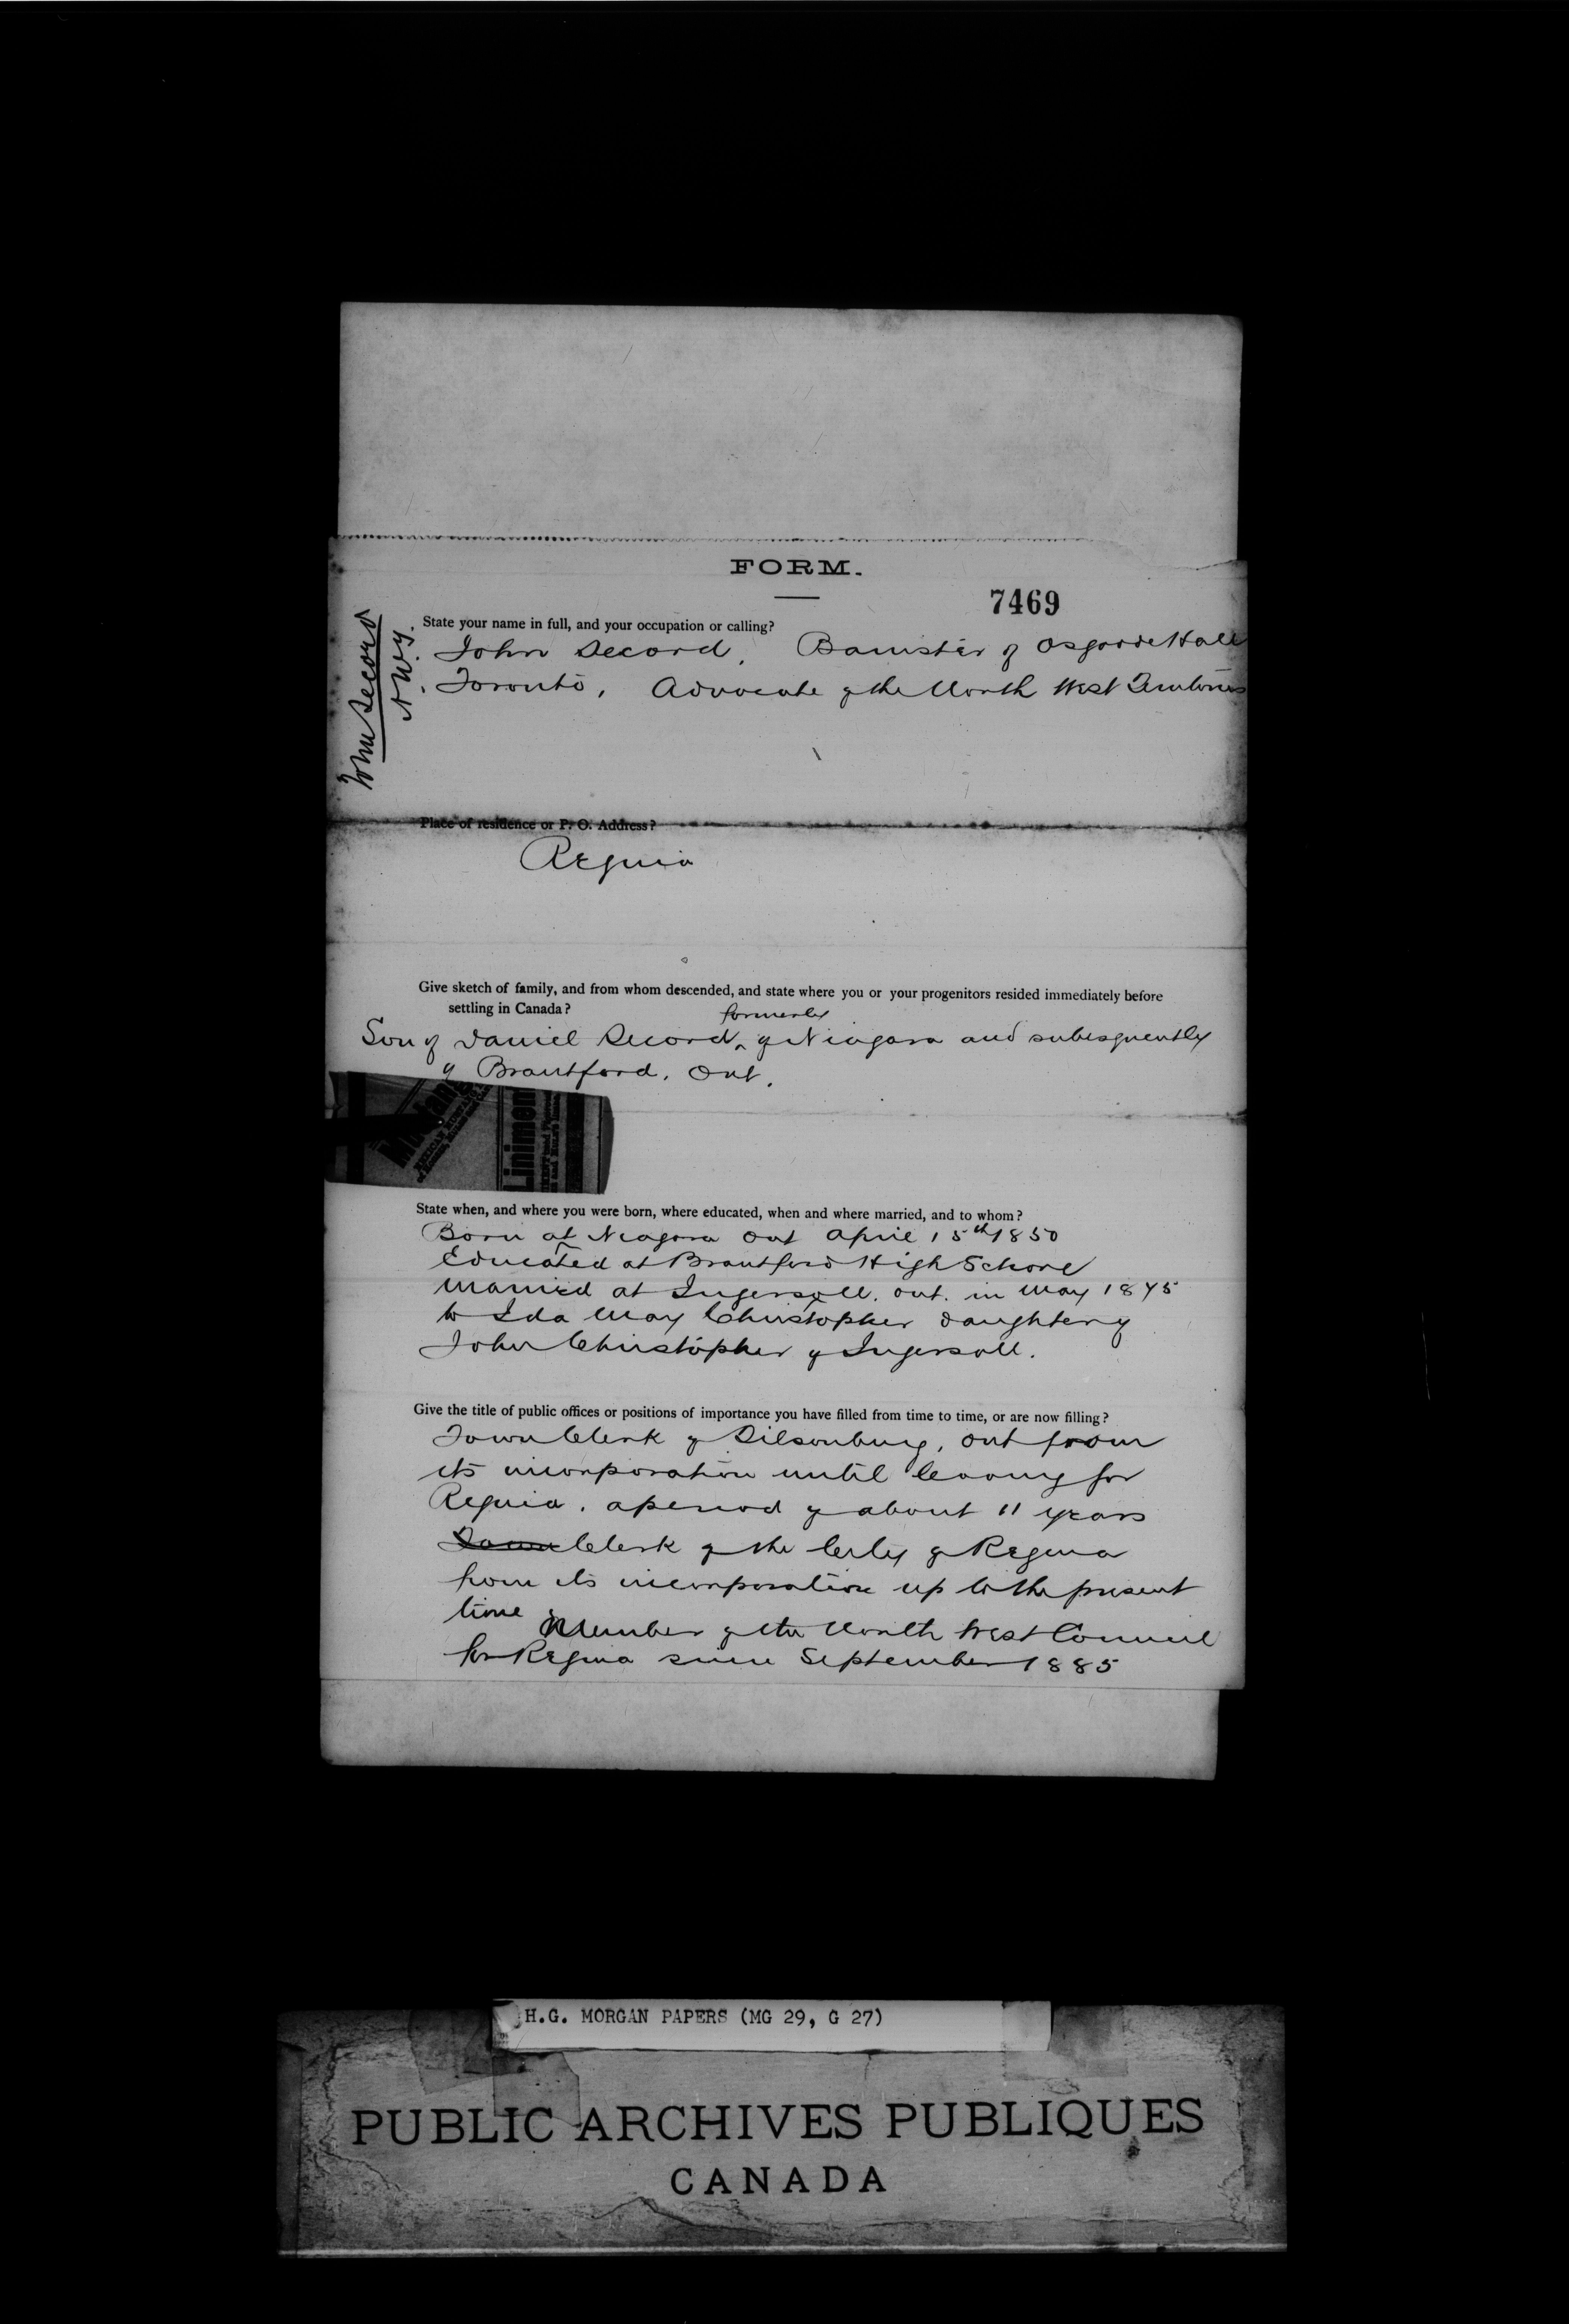 FORM.
7469
John Secord
N.W.Y.
State your name in full, and your occupation or calling?
John Secord, Barrister of Osgoode Hall
Toronto, Advocate of the North West Territories
Place of residence or P. O. Address?
Regina
Give sketch of family, and from whom descended, and state where you or your progenitors resided immediately before
settling in Canada?
formerly
Son of Daniel Secord, of Niagara and subsequently
of Brantford, Ont.
Liniment
State when, and where you were born, where educated, when and where married, and to whom?
Born at Niagara Ont April 15th 1850
Educated at Brantford High School
Married at Ingersoll. Ont. in May 1875
to Ida May Christopher daughter of
John Christopher of Ingersoll.
Give the title of public offices or positions of importance you have filled from time to time, or are now filling?
Town Clerk of Tilsonburg, Ont from
its incorporation until leaving for
Regina. a period of about 11 years
Town Clerk of the City of Regina
from its incorporation up to the present
time Member of the North West Council
for Regina since September 1885
H.G. MORGAN PAPERS (MG 29, G 27)
PUBLIC ARCHIVES PUBLIQUES
CANADA